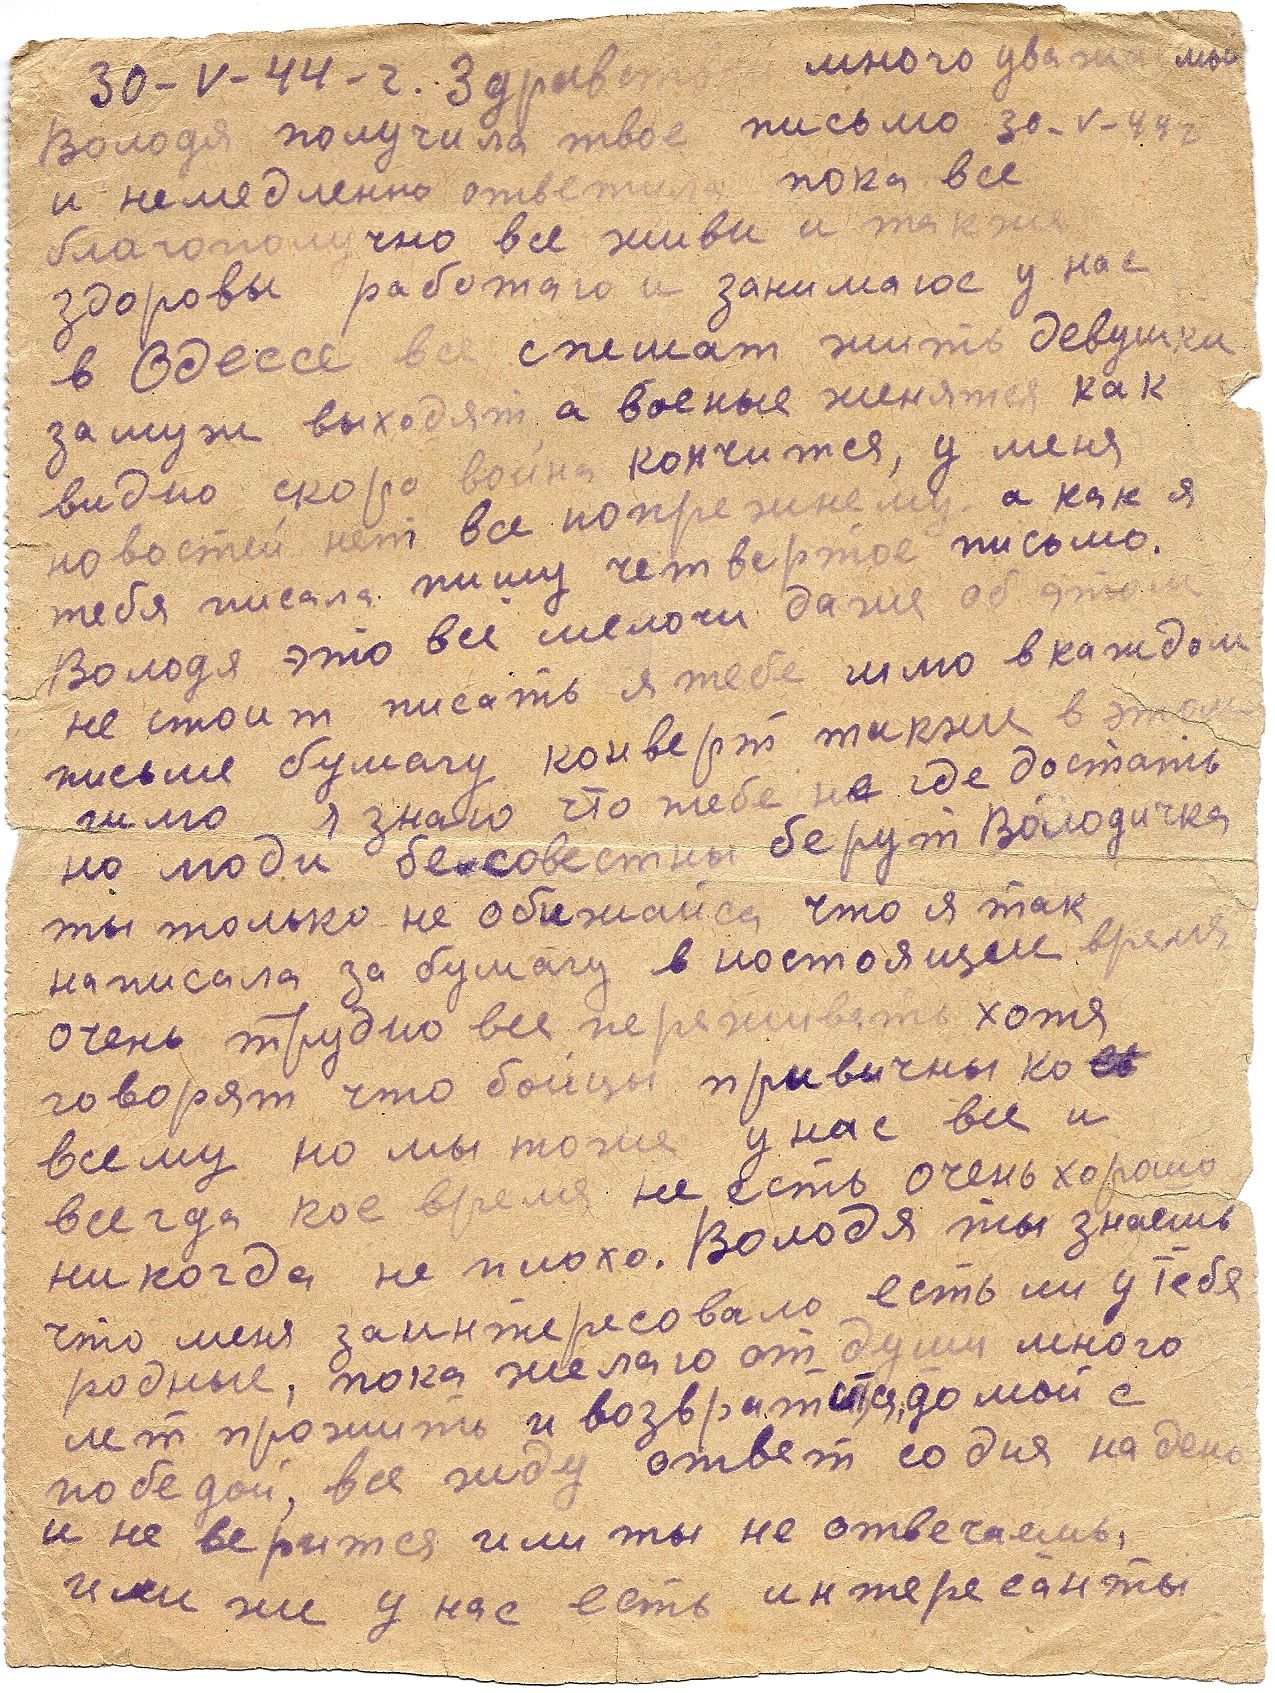 30-V-44-г. Здравствуй много уважаемый
Володя получила твое письмо 30-V-44г
и немедленно ответила пока все
благополучно все живы и также
здоровы работаю и занимаюс у нас
в Одессе все спешат жить девушки
замуж выходят, а военые женятся как
видно скоро война кончится, у меня
новостей нет все попрежнему. а как я
тебя писала пишу четвертое письмо.
Володя это все мелочи даже об этом
не стоит писать я тебе шлю в каждом
письме бумагу конверт также в этом
шлю я знаю что тебе не где достать
но люди бессовестны берут Володичка
ты только не обижайса что я так
написала за бумагу в ностоящее время
очень трудно все переживать хотя
говорят что бойцы привычны ко
всему но мы тоже у нас все и
всегда кое время не есть очень хорошо
никогда не плохо. Володя ты знаешь
что меня заинтересовало есть ли у тебя
родные, пока желаю от души много
лет прожить и возвратится, домой с
победой, все жду ответ со дня на день
и не верится или ты не отвечаешь,
или же у нас есть интересанты